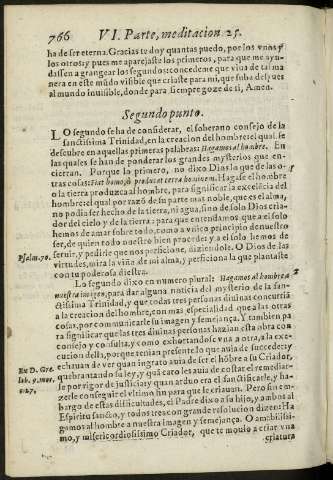 766 VI. Parte, meditacion. 25.
ha de ser eterna. Gracias te doy quantas puedo, por los vnos y
los otros: y pues me aparejaste los primeros, para que me ayu-
dassen a grangear los segundos: concedeme que viua de tal ma
nera en este mũdo visible que criaste para mi, que suba despues
al mundo inuisible, donde para siempre goze de ti, Amen.
Segundo punto.
LO segundo se ha de considerar, el soberano consejo de la
sanctissima Trinidad, en la creacion del hombre: el qual se
descubre en aquellas primeras palabras: Hagamos al hombre. En
las quales se han de ponderar los grandes mysterios que en-
cierran. Porque lo primero, no dixo Dios lo que de las o-
tras cosas: Fiat homo, ò producat terra hominem. Hagase el hombre
o la tierra produzca al hombre, para significar la excelẽcia del
hombre: el qual por razõ de su parte mas noble, que es el alma,
no podia ser hecho de la tierra, ni agua, sino de solo Dios cria-
dor del cielo y de la tierra: para que entendamos que a el solo
hemos de amar sobre todo, como a vnico principio de nuestro
ser, de quien todo nuestro bien procede: y a el solo hemos de
seruir, y pedirle que nos perficione, diziendole. O Dios de las
Psalm. 79. virtudes, mira la viña de mi alma, y perficiona la que plantaste
con tu poderosa diestra.
Lo segundo dixo en numero plural: Hagamos al hombre a
nuestra imagen, para dar alguna noticia del mysterio de la san-
ctissima Trinidad, y que todas tres personas diuinas concurriã
a la creacion del hombre, con mas especialidad que a las otras
cosas, por communicarle su imagen y semejança. Y tambien pa
ra significar que las tres diuinas personas hazian esta obra con
consejo y consulta, y como exhortandose vna a otra, la exe-
cucion della, porque tenian presente lo que auia de suceder: y
Ex D. Gre. echauan de ver quan ingrato auia de ser el hõbre a su Criador,
lib. 9. mor. quebrantando su ley, y quã caro les auia de costar el remediar-
c. 27. se por rigor de justicia: y quan arduo era el sanctificarle, y ha-
zerle conseguir el vltimo fin para que le criauan. Pero sin em-
bargo de estas difficultades, el Padre dixo a su hijo, y ambos al
Espiritu sancto, y todos tres con grande resolucion dizen: Ha
gamos al hombre a nuestra imagen y semejança. O amabilissi-
mo, y misericordiosissimo Criador, que te mouio a criar vna
criatura